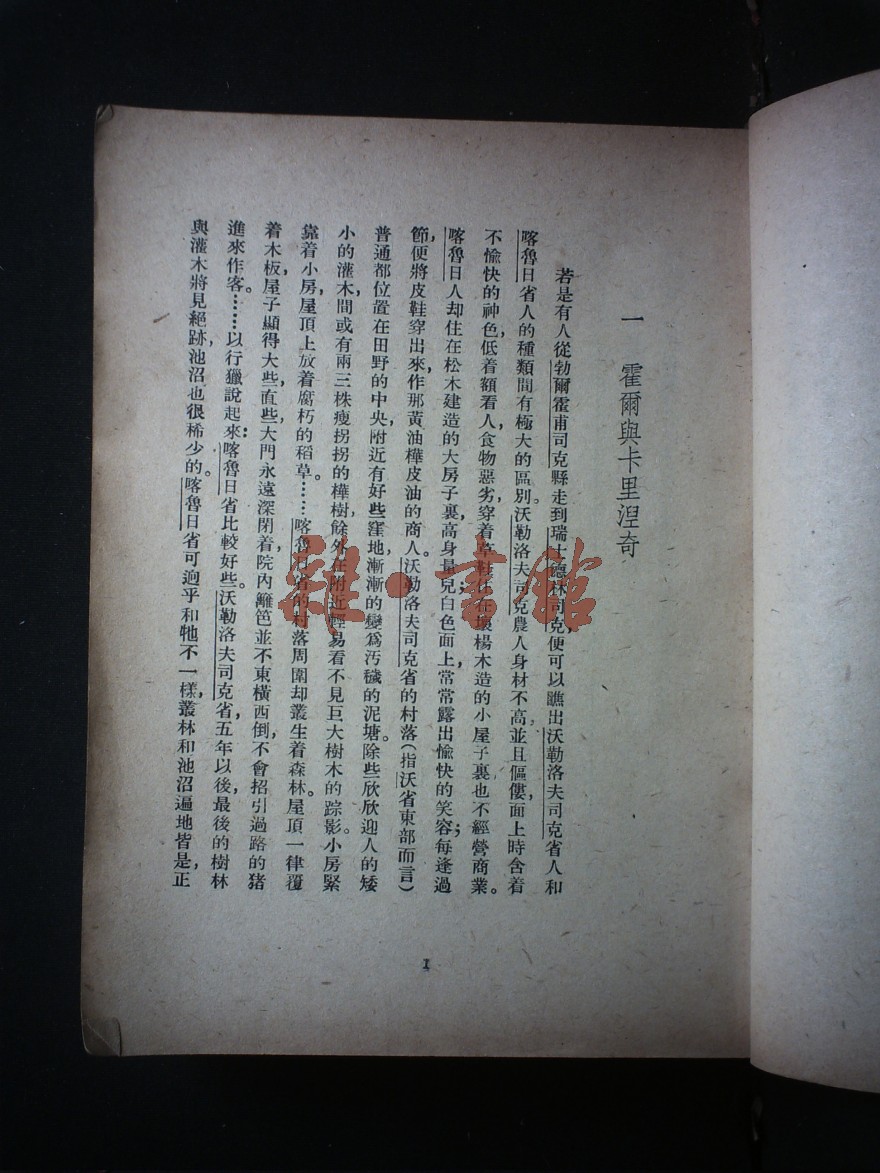 一 霍爾與卡里湼奇
若是有人從勃爾霍甫司克縣走到瑞士德林司克，便可以瞧出沃勒洛夫司克省人和
喀魯日省人的種類間有極大的區別。沃勒洛夫司克農人身材不高，並且傴僂，面上時含着
不愉快的神色，低着額看人，食物惡劣，穿着草鞋，住在壞楊木造的小屋子裏，也不經營商業。
喀魯日人却住在松木建造的大房子裏，高身量兒，白色面上，常常露出愉快的笑容；每逢過
節，便將皮鞋穿出來，作那黃油樺皮油的商人。沃勒洛夫司克省的村落（指沃省東部而言）
普通都位置在田野的中央，附近有好些窪地，漸漸的變爲汚穢的泥塘。除些欣欣迎人的矮
小的灌木間或有兩三株瘦拐拐的樺樹餘外在附近輕易看不見巨大樹木的踪影。小房緊
靠着小房，屋頂上放着腐朽的稻草。……喀魯日省的村落周圍却叢生着森林。屋頂一律覆
着木板，屋子顯得大些，直些，大門永遠深閉着，院內籬笆並不東橫西倒，不會招引過路的猪
進來作客。……以行獵說起來：喀魯日省比較好些。沃勒洛夫司克省，五年以後，最後的樹林
與灌木將見絕跡，池沼也很稀少的。喀魯日省可逈乎和牠不一樣，叢林和池沼遍地皆是，正
1
雜·書館